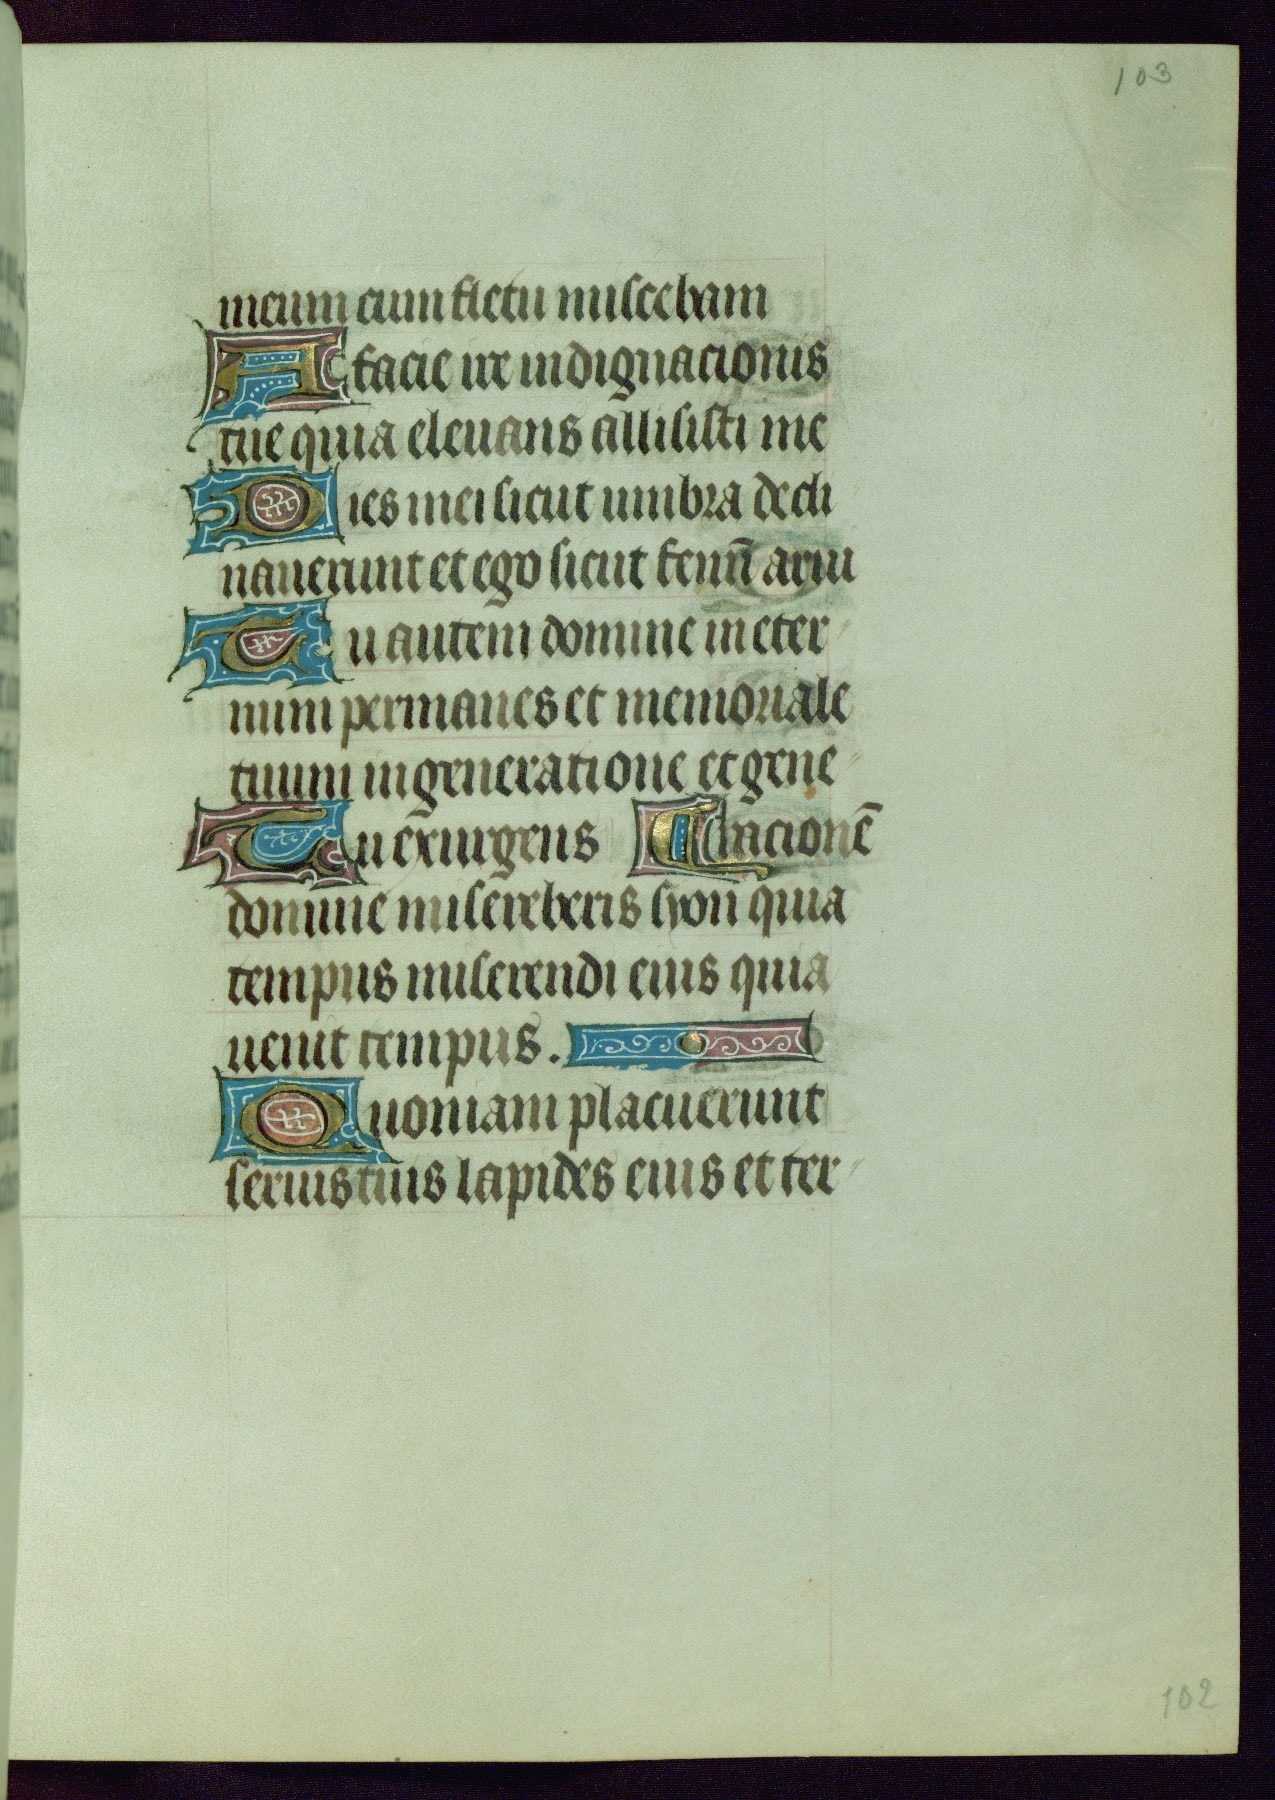 103
meum cum fletu miscebam
A facie ire indignacionis
tue quia elevans allisisti me
Dies mei sicut umbra decli
nauerunt et ego sicut fenū arui
Tu autem domine in eter
num permanes et memoriale
tuum in generatione et gene
Tu exurgens racionē
domine misereberis syon quia
tempus miserendi eius quia
uenit tempus.
Quoniam placuerunt
seruis tuis lapides eius et ter
102